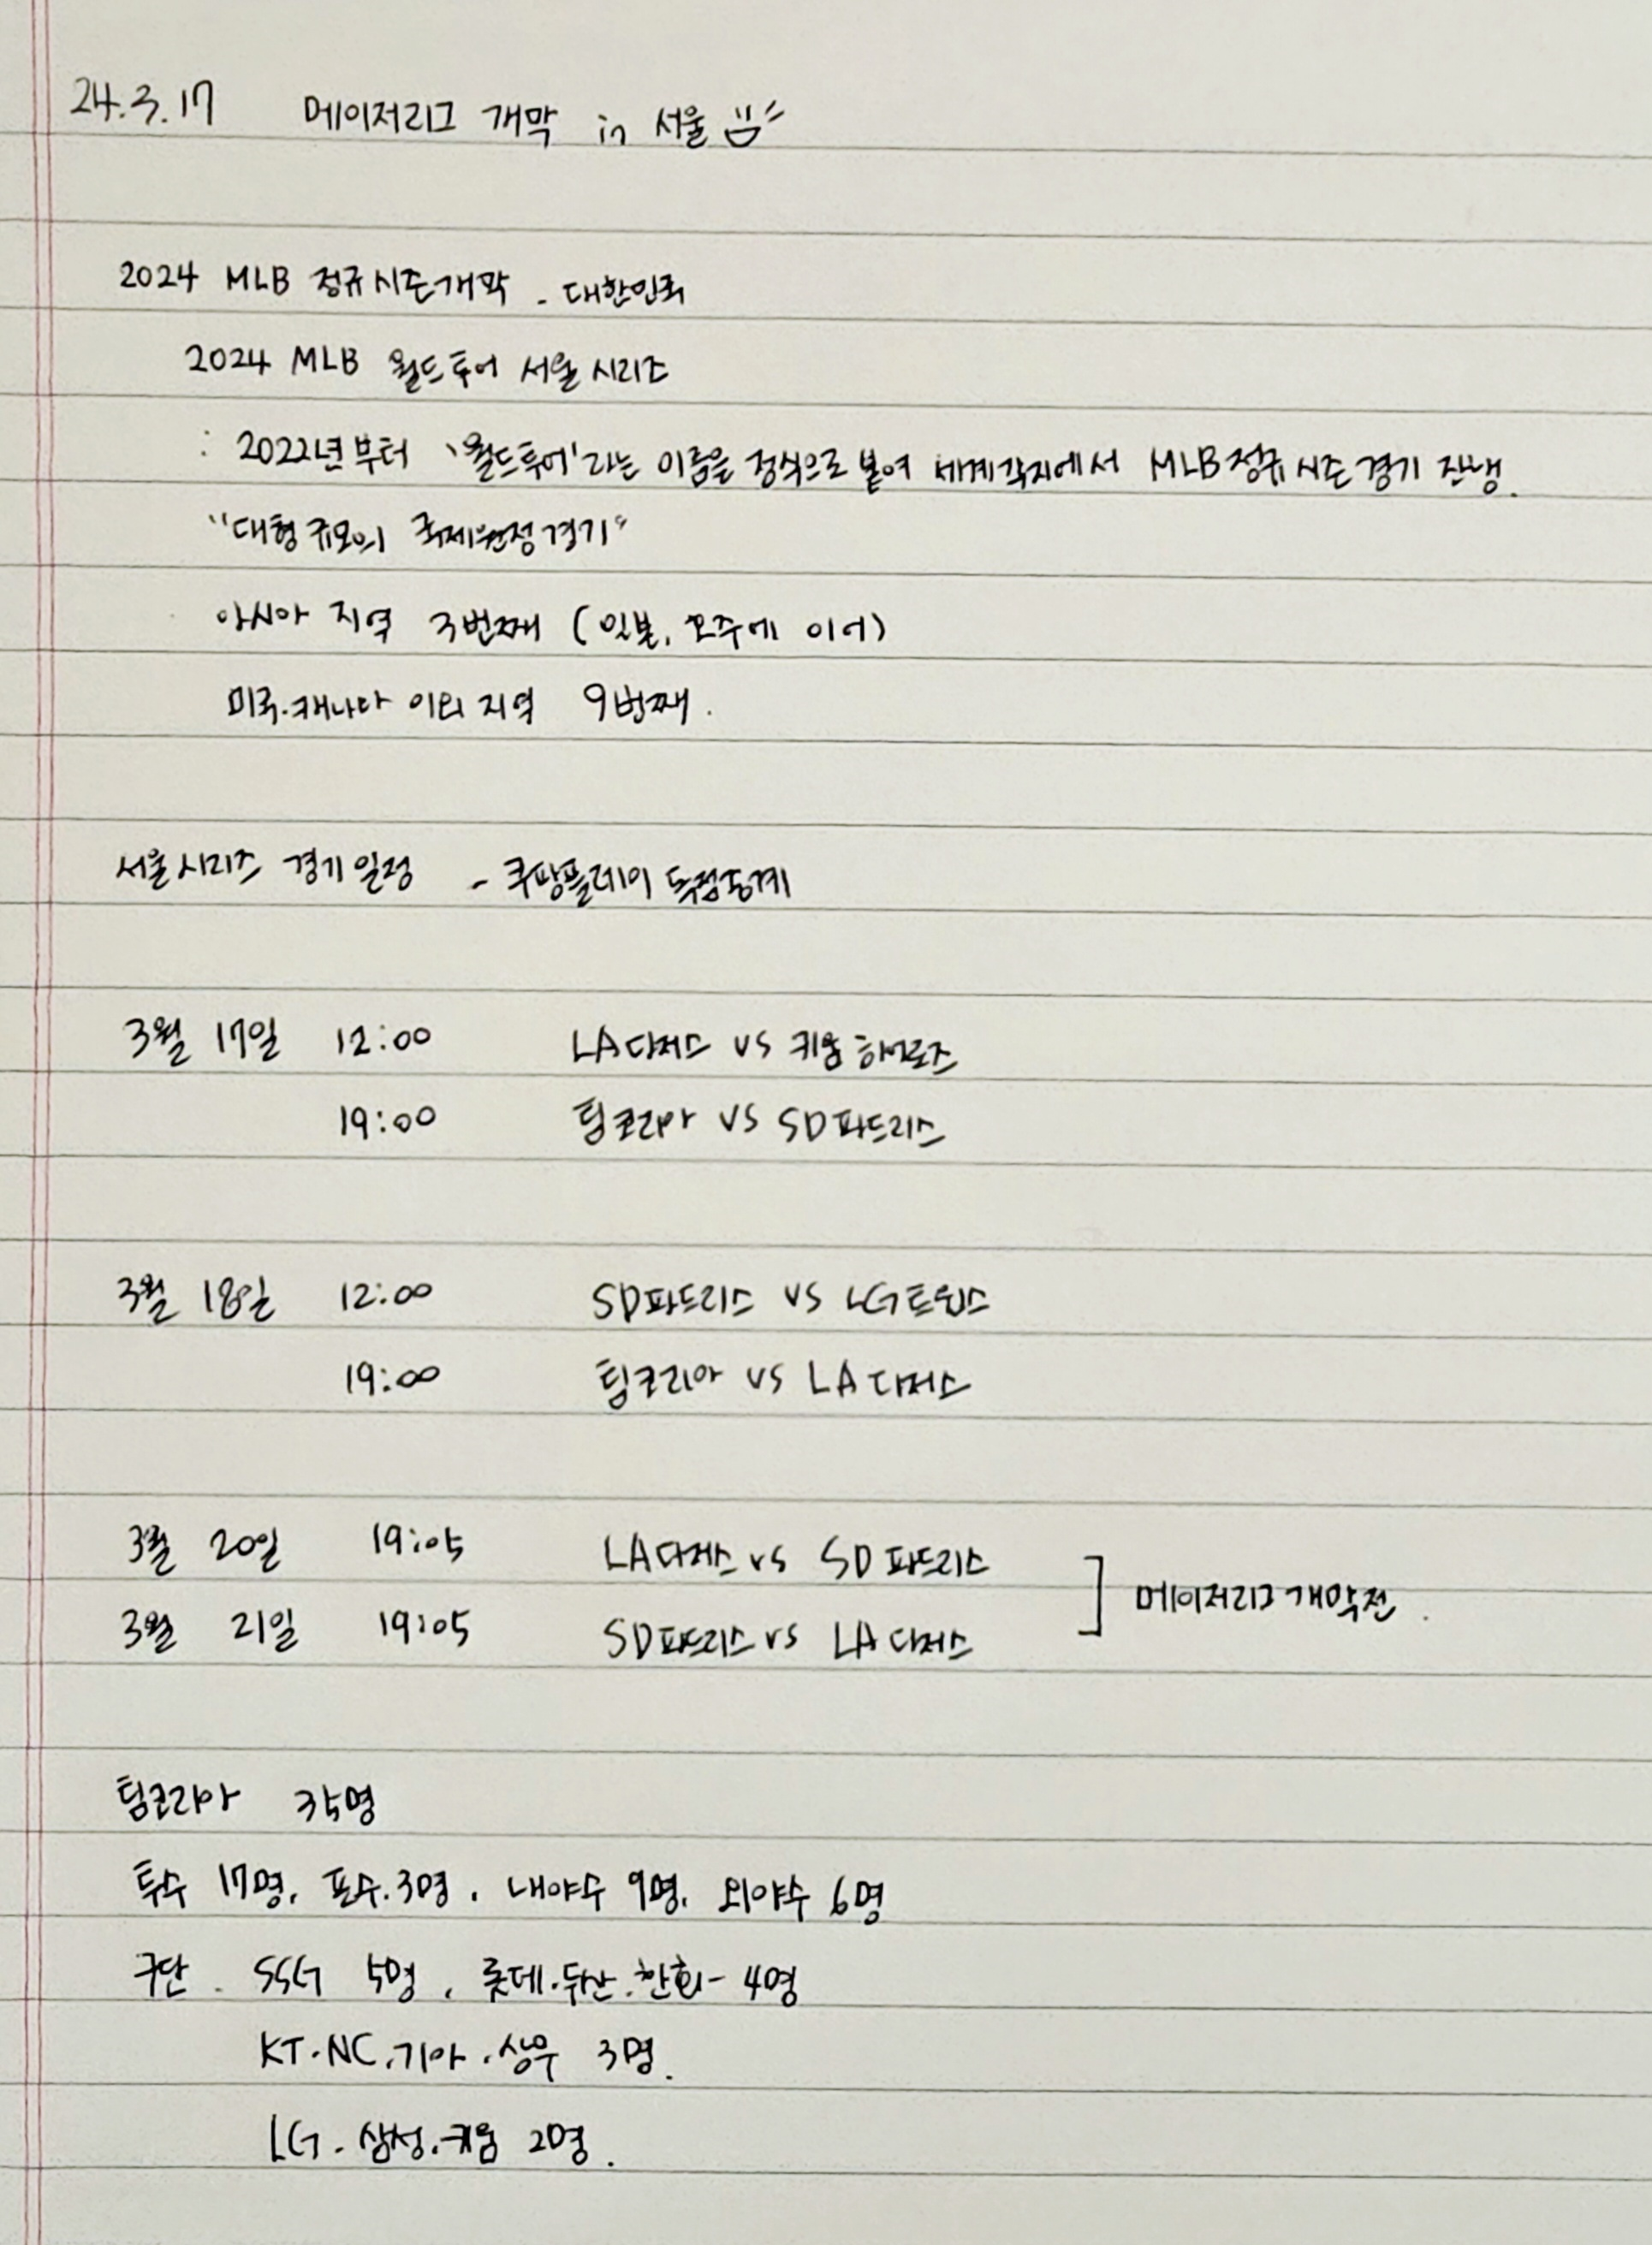 24.3.17 메이저리그 개막 in 서울
2024 MLB 정규시즌개막 - 대한민국
2024 MLB 월드투어 서울 시리즈
: 2022년부터 '월드투어'라는 이름을 정식으로 붙여 세계각지에서 MLB정규시즌경기 진행.
"대형규모의 국제원정경기"
아시아 지역 3번째 (일본, 호주에 이어)
미국·캐나다 이외 지역 9번째.
서울시리즈 경기일정 - 쿠팡플레이 독점중계
3월 17일 12:00 LA다저스 VS 키움히어로즈
19:00 팀코리아 VS SD파드리스
3월 18일 12:00 SD파드리스 VS LG트윈스
19:00 팀코리아 VS LA다저스
3월 20일 19:05 LA다저스 vs SD파드리스
메이저리그개막전.
3월 21일 19:05 SD파드리스 vs LA다저스
팀코리아 35명
투수 17명, 포수.3명, 내야수 9명, 외야수 6명
구단. SSG 5명, 롯데·두산·한화- 4명
KT·NC·기아·상무 3명.
LG·삼성·키움 2명.